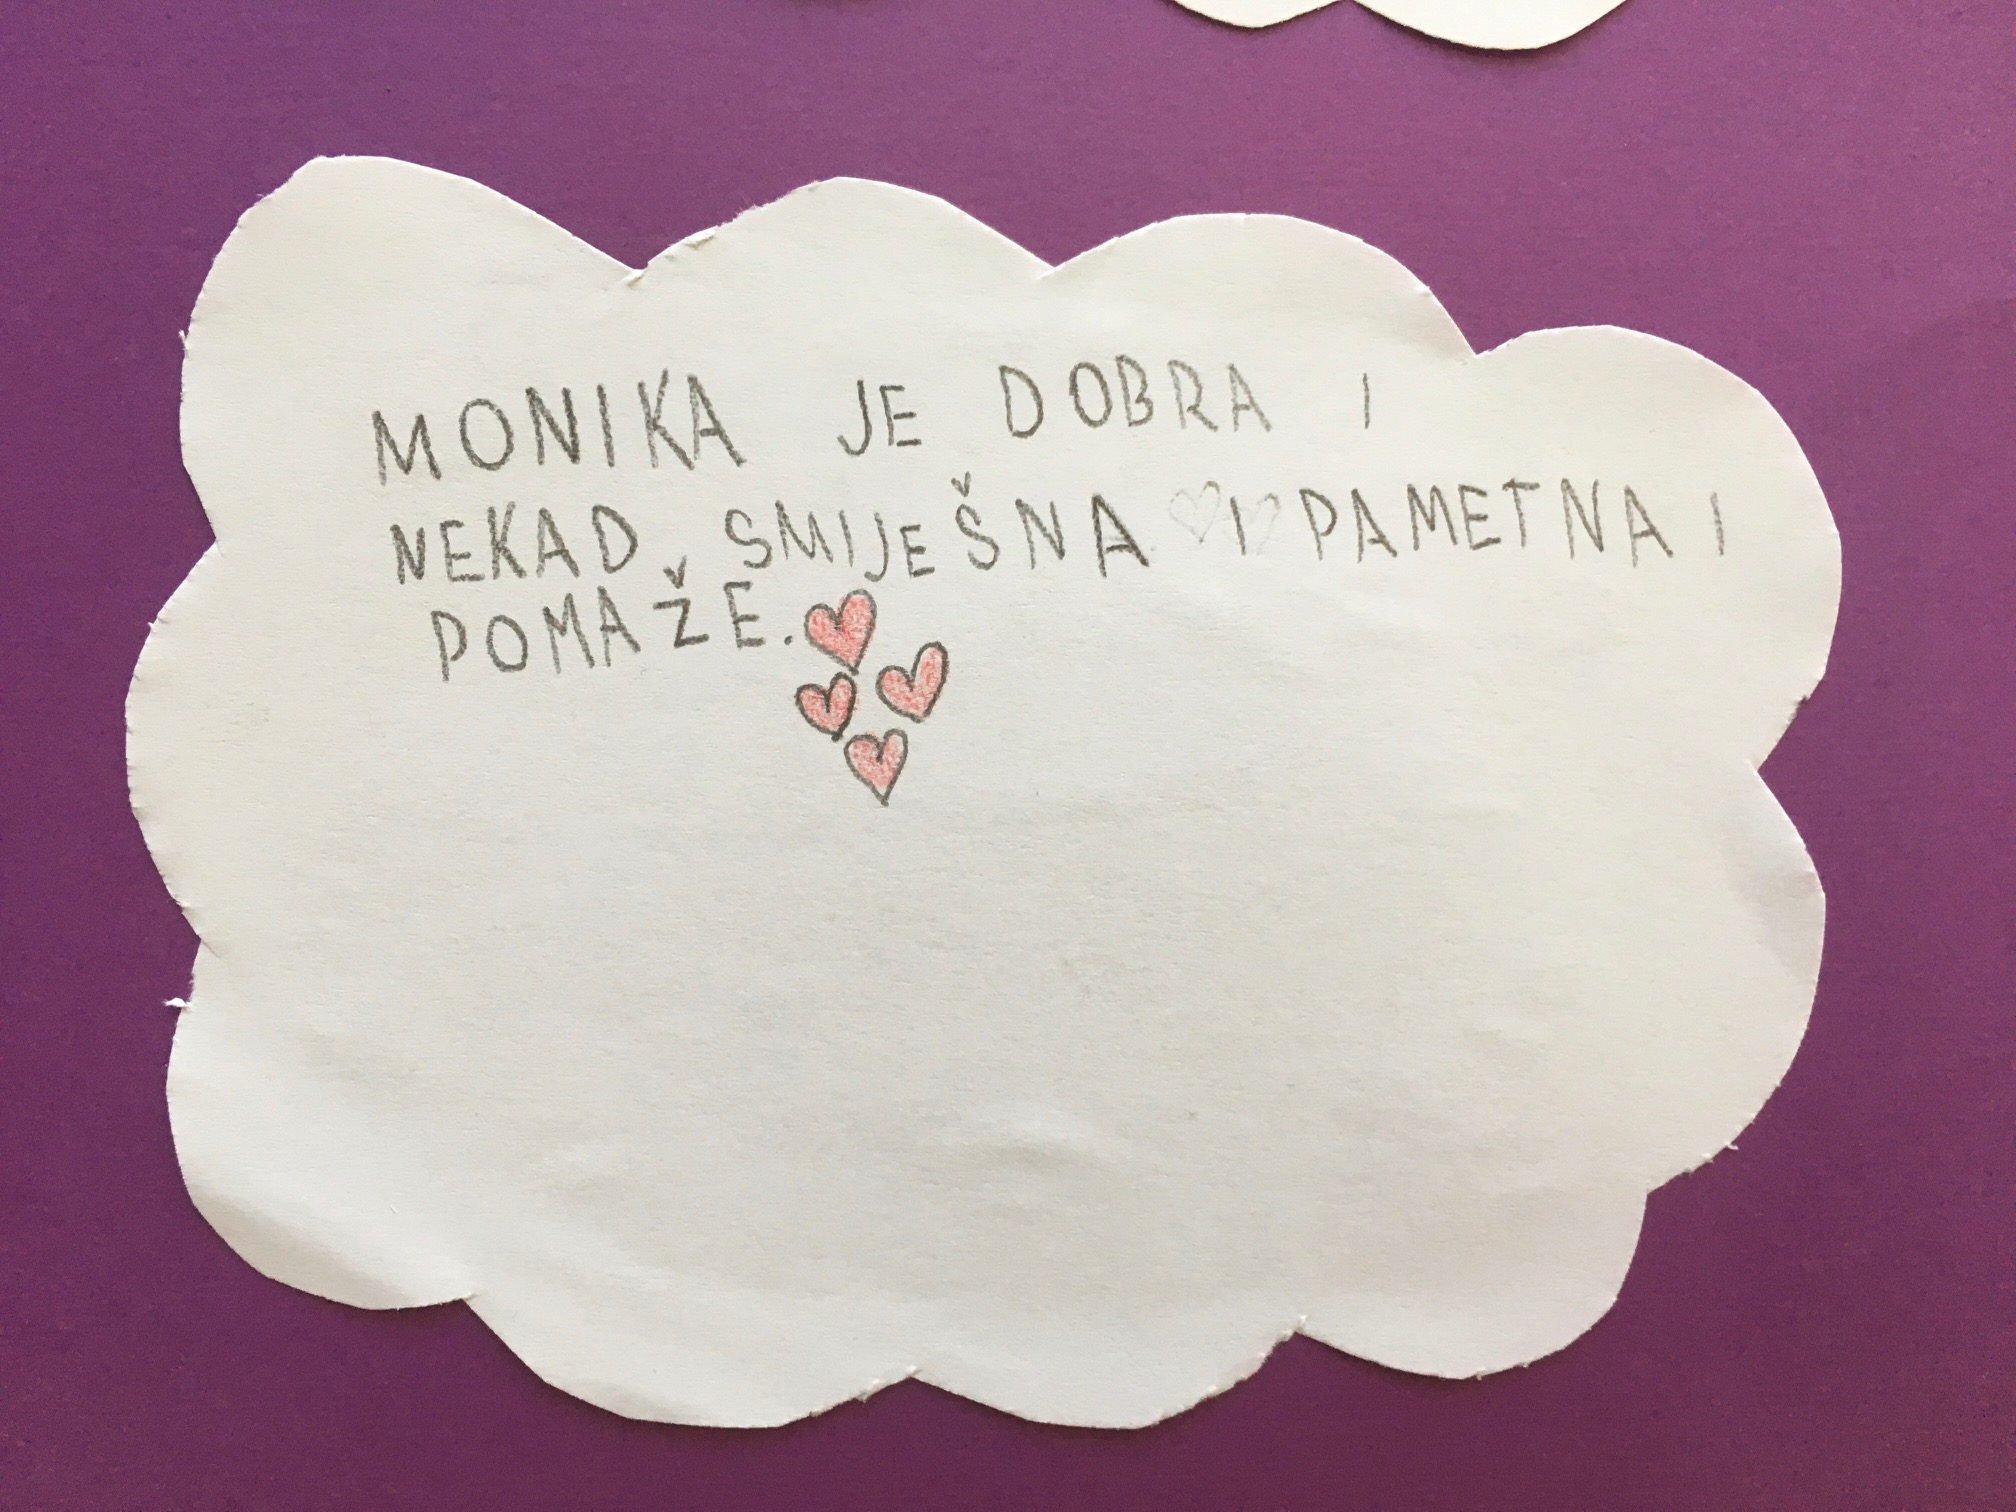 MONIKA JE DOBRA I
NEKAD SMIJEŠNA I PAMETNA I
POMAŽE.